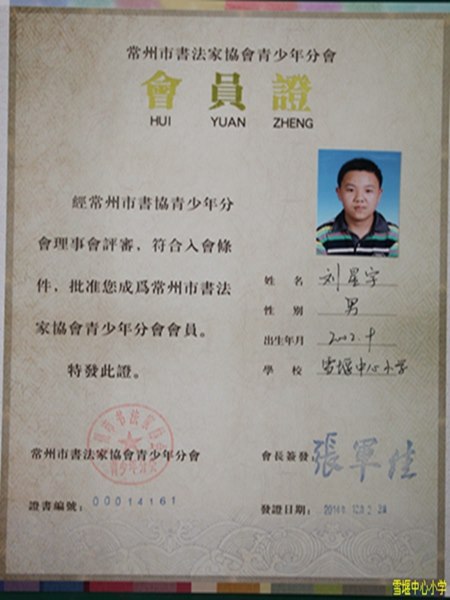 常州市書法家協會青少年分會
會員證
HUI YUAN ZHENG
經常州市書協青少年分
會理事會評審，符合入會條
件，批准您成爲常州市書法
家協會青少年分會會員。
特發此證。
姓名 刘星宇
性別 男
出生年月 2002.9
學校 雪堰中心小学
常州市書法家協會青少年分會
會長簽發：張軍佳
證書編號：00014161
發證日期：2014年12月
雪堰中心小学